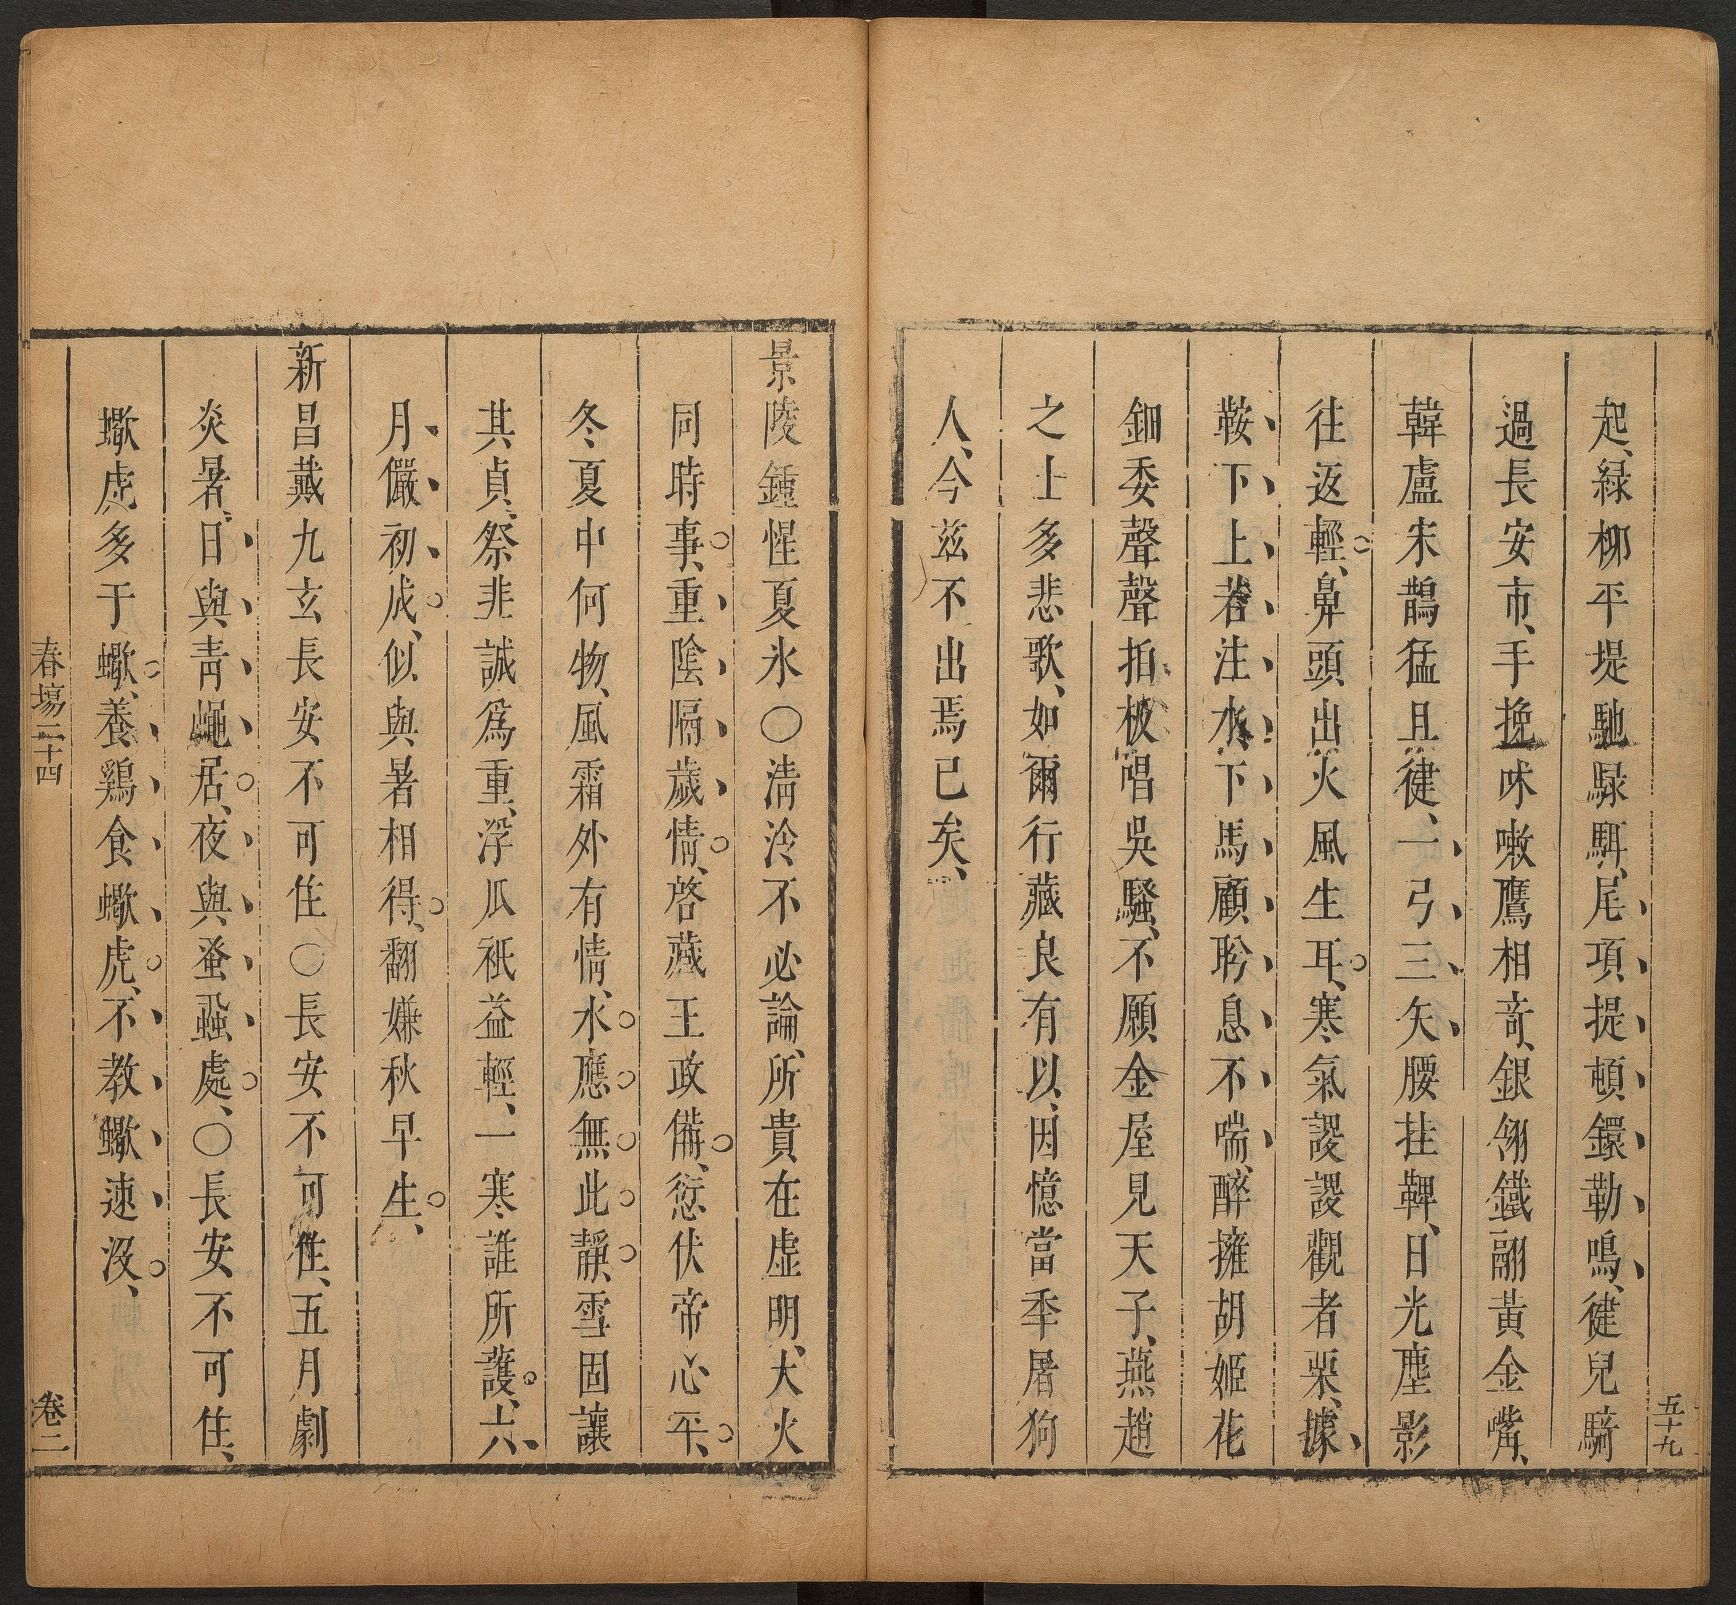 起、緑柳平堤馳騄駬、尾項提頓鐶勒鳴、健兒騎
過長安市、手挽咊嗾鷹相竒、銀翎鐵翮黃金嘴、
韓盧宋鵲猛且健、一弓三矢腰挂鞞、日光塵影
往返輕、鼻頭出火風生耳、寒氣謖謖觀者栗、據
鞍下上若注水、下馬顧盻息不喘、醉擁胡姬花
鈿委聲聲拍板唱吳騷、不願金屋見天子、燕趙
之士多悲歌、如爾行藏良有以、因憶當年屠狗
人、今兹不出焉已矣、
五十九
景陵鍾惺夏氷○淸泠不必論、所貴在虚明、大火
同時事、重陰隔歲情、啓藏王政備、愆伏帝心平、
冬夏中何物、風霜外有情、水應無此靜、雪固讓
其貞、祭非誠爲重、浮瓜祇益輕、一寒誰所護、六
月儼初成、似與暑相得、翻嫌秋早生、
新昌戴九玄長安不可住○長安不可住、五月劇
炎暑、日與靑蠅居、夜與蚤蝨處、○長安不可住、
蠍虎多于蠍、養鷄食蠍虎、不教蠍速沒、
春塲二十四
卷二